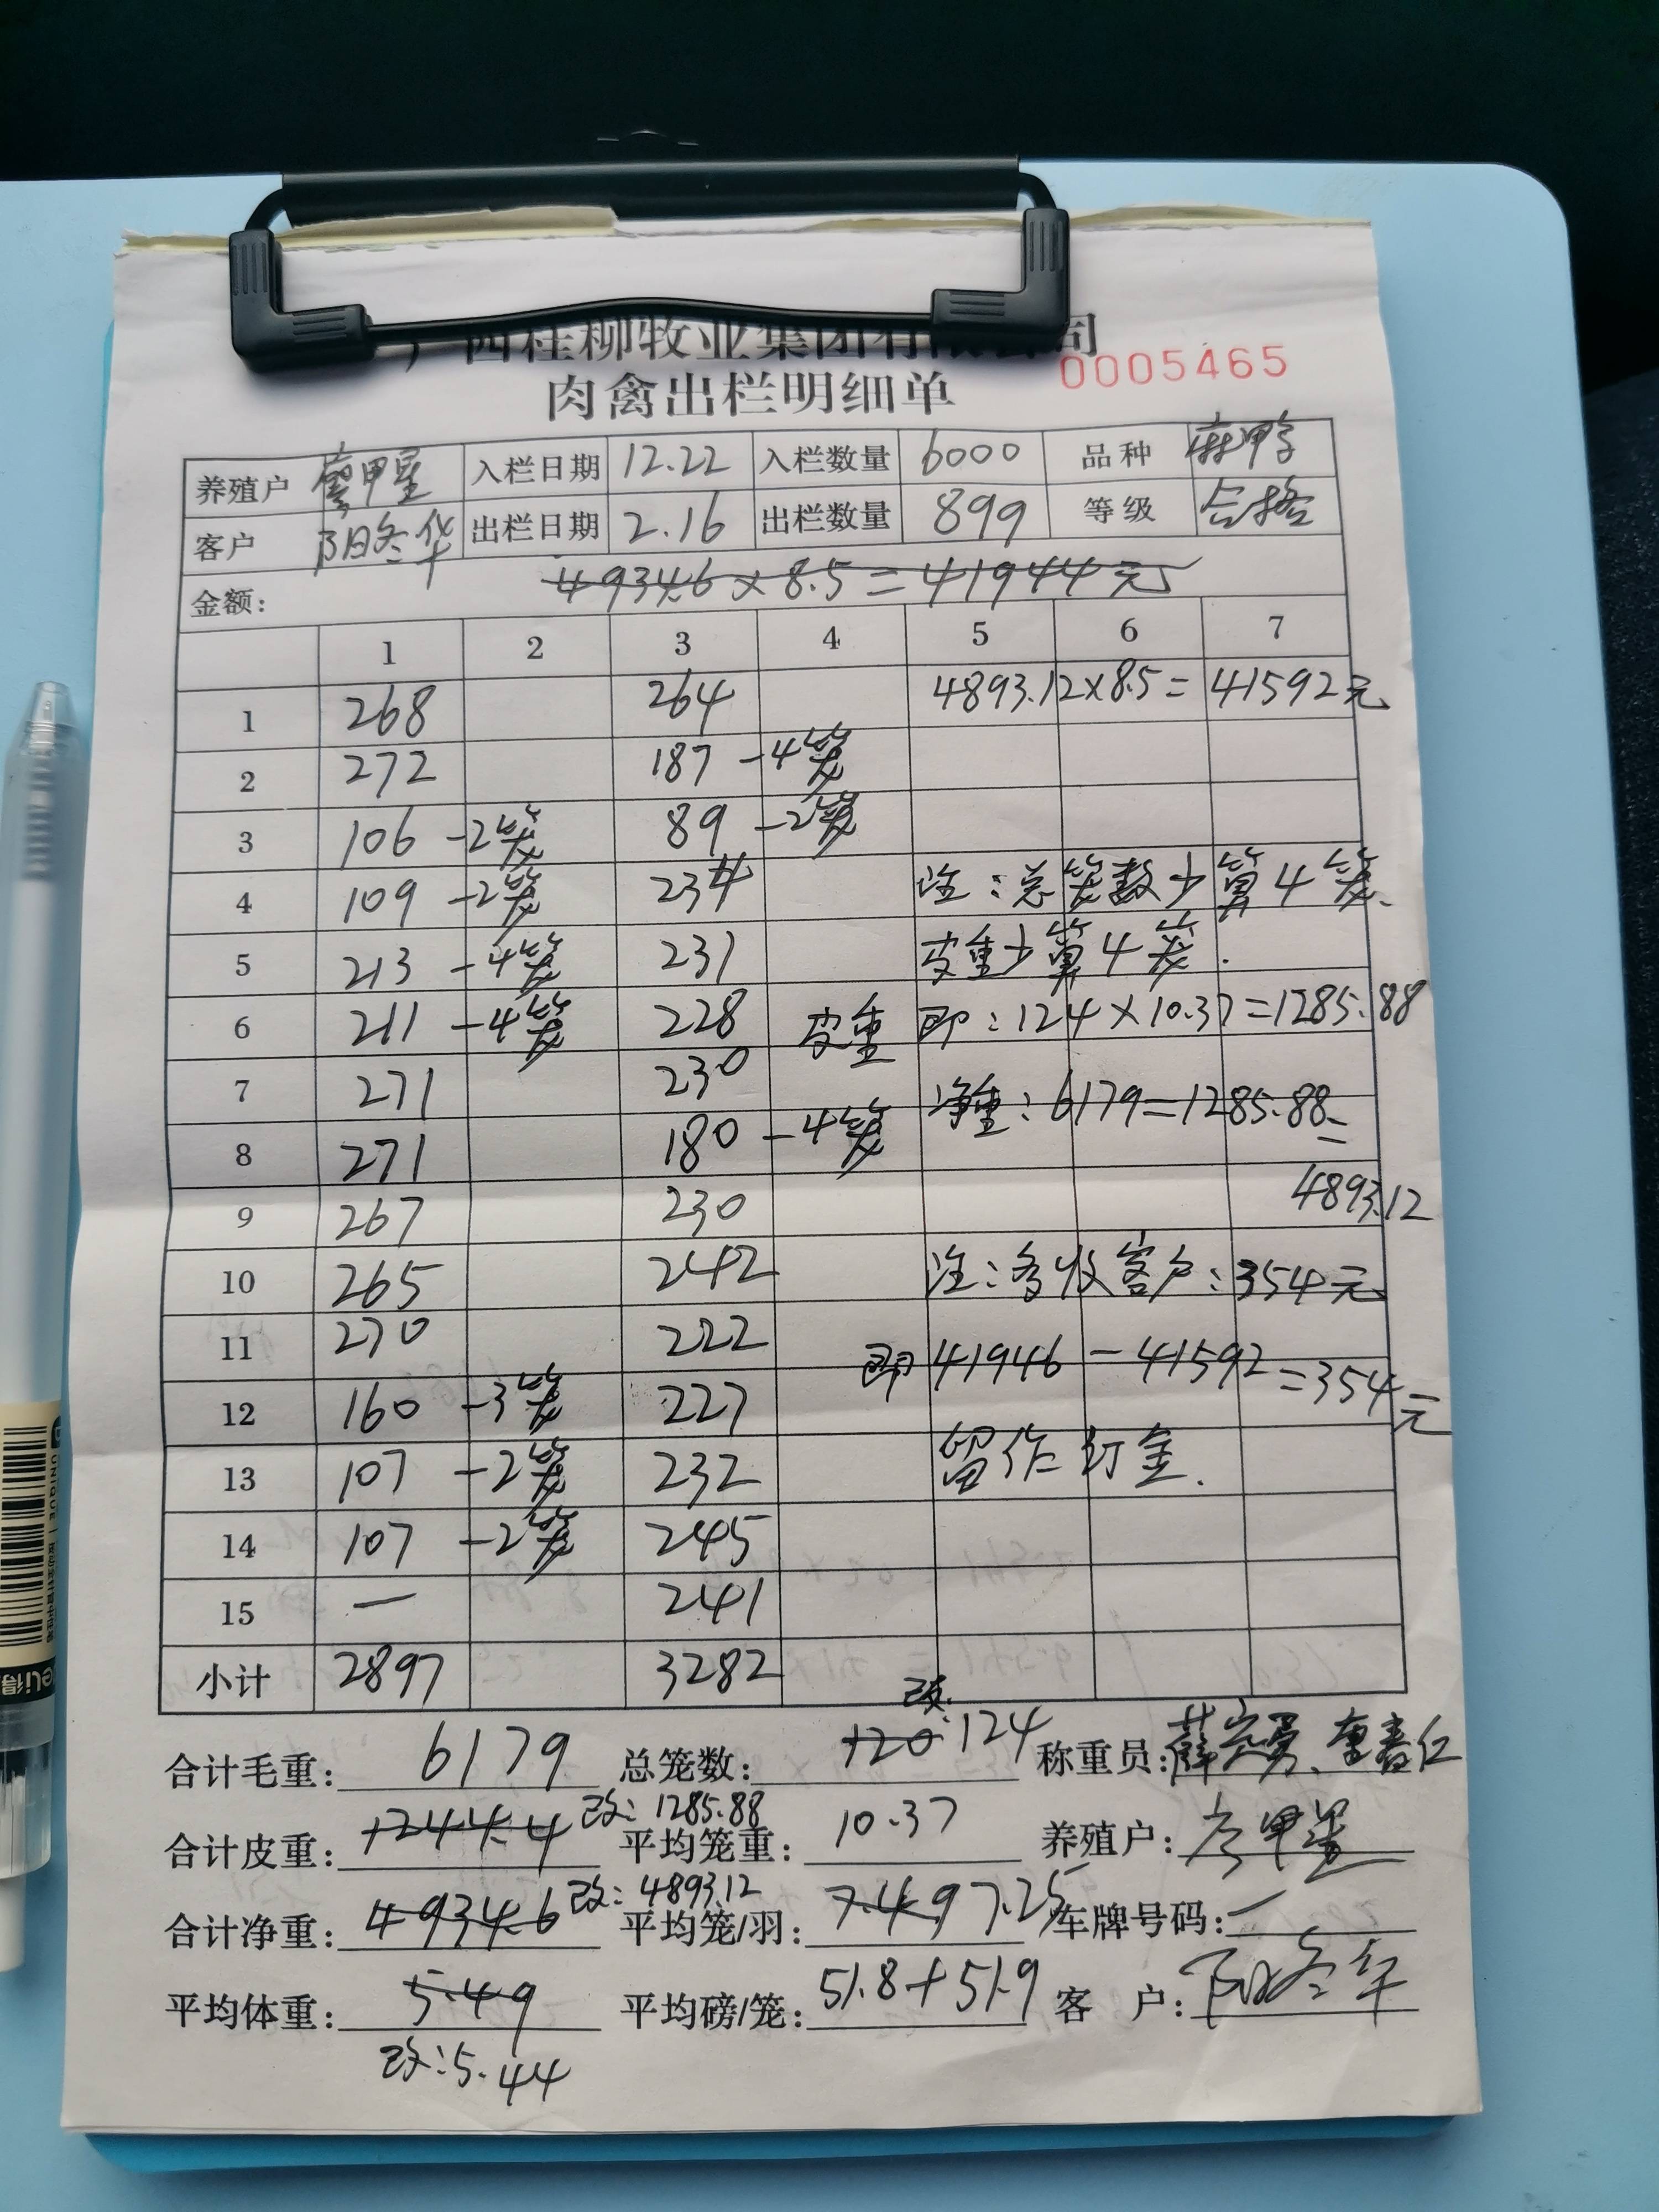 广西桂柳牧业集团有限公司
0005465
肉禽出栏明细单
养殖户 廖甲星 入栏日期 12.22 入栏数量 6000 品种 麻鸭
客户 阳冬华 出栏日期 2.16 出栏数量 899 等级 合格
金额: 4934.6×8.5=41944元
1 2 3 4 5 6 7
1 268 264 4893.12×8.5=41592元
2 272 187 -4笼
3 106 -2笼 89 -2笼
4 109 -2笼 234 注:总笼数少算4笼.
5 213 -4笼 231 皮重少算4笼.
6 211 -4笼 228 皮重 即:124×10.37=1285.88
7 271 230 净重:6179=1285.88=
8 271 180 -4笼
9 267 230 4893.12
10 265 242 注:多收客户:354元
11 270 222 即41946-41592=354元
12 160 -3笼 227
13 107 -2笼 232 留作订金.
14 107 -2笼 245
15 — 241
小计 2897 3282
合计毛重: 6179 总笼数: 120 改: 124 称重员:
合计皮重: 1244.4 改: 1285.88 平均笼重: 10.37 养殖户: 廖甲星
合计净重: 4934.6 改: 4893.12 平均笼/羽: 7.49 7.25 车牌号码: —
平均体重: 5.49 平均磅/笼: 51.8+51.9 客户: 阳冬华
改:5.44
UNIQUE
deli得